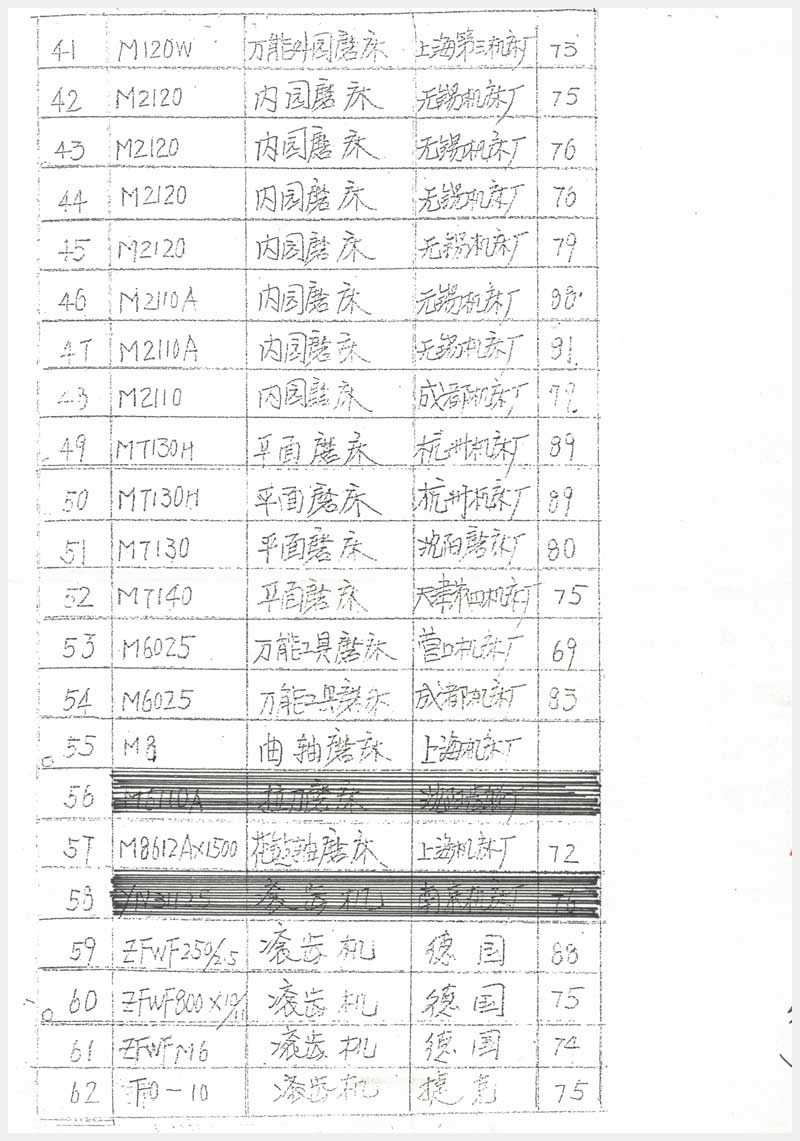 41 M120W 万能外园磨床 上海第三机床厂 75
42 M2120 内园磨床 无锡机床厂 75
43 M2120 内园磨床 无锡机床厂 76
44 M2120 内园磨床 无锡机床厂 76
45 M2120 内园磨床 无锡机床厂 79
46 M2110A 内园磨床 无锡机床厂 88
47 M2110A 内园磨床 无锡机床厂 91
48 M2110 内园磨床 成都机床厂 79
49 M7130H 平面磨床 杭州机床厂 89
50 M7130H 平面磨床 杭州机床厂 89
51 M7130 平面磨床 沈阳磨床厂 80
52 M7140 平面磨床 天津第四机床厂 75
53 M6025 万能工具磨床 营口机床厂 69
54 M6025 万能工具磨床 成都机床厂 83
55 M8 曲轴磨床 上海机床厂
56 M6110A 拉刀磨床
57 M8612A×1500 花键轴磨床 上海机床厂 72
58 滚齿机 南京机床厂 76
59 ZFWF250/2.5 滚齿机 德国 88
60 ZFWF800×10/11 滚齿机 德国 75
61 ZFWFM6 滚齿机 德国 74
62 TO-10 滚齿机 捷克 75